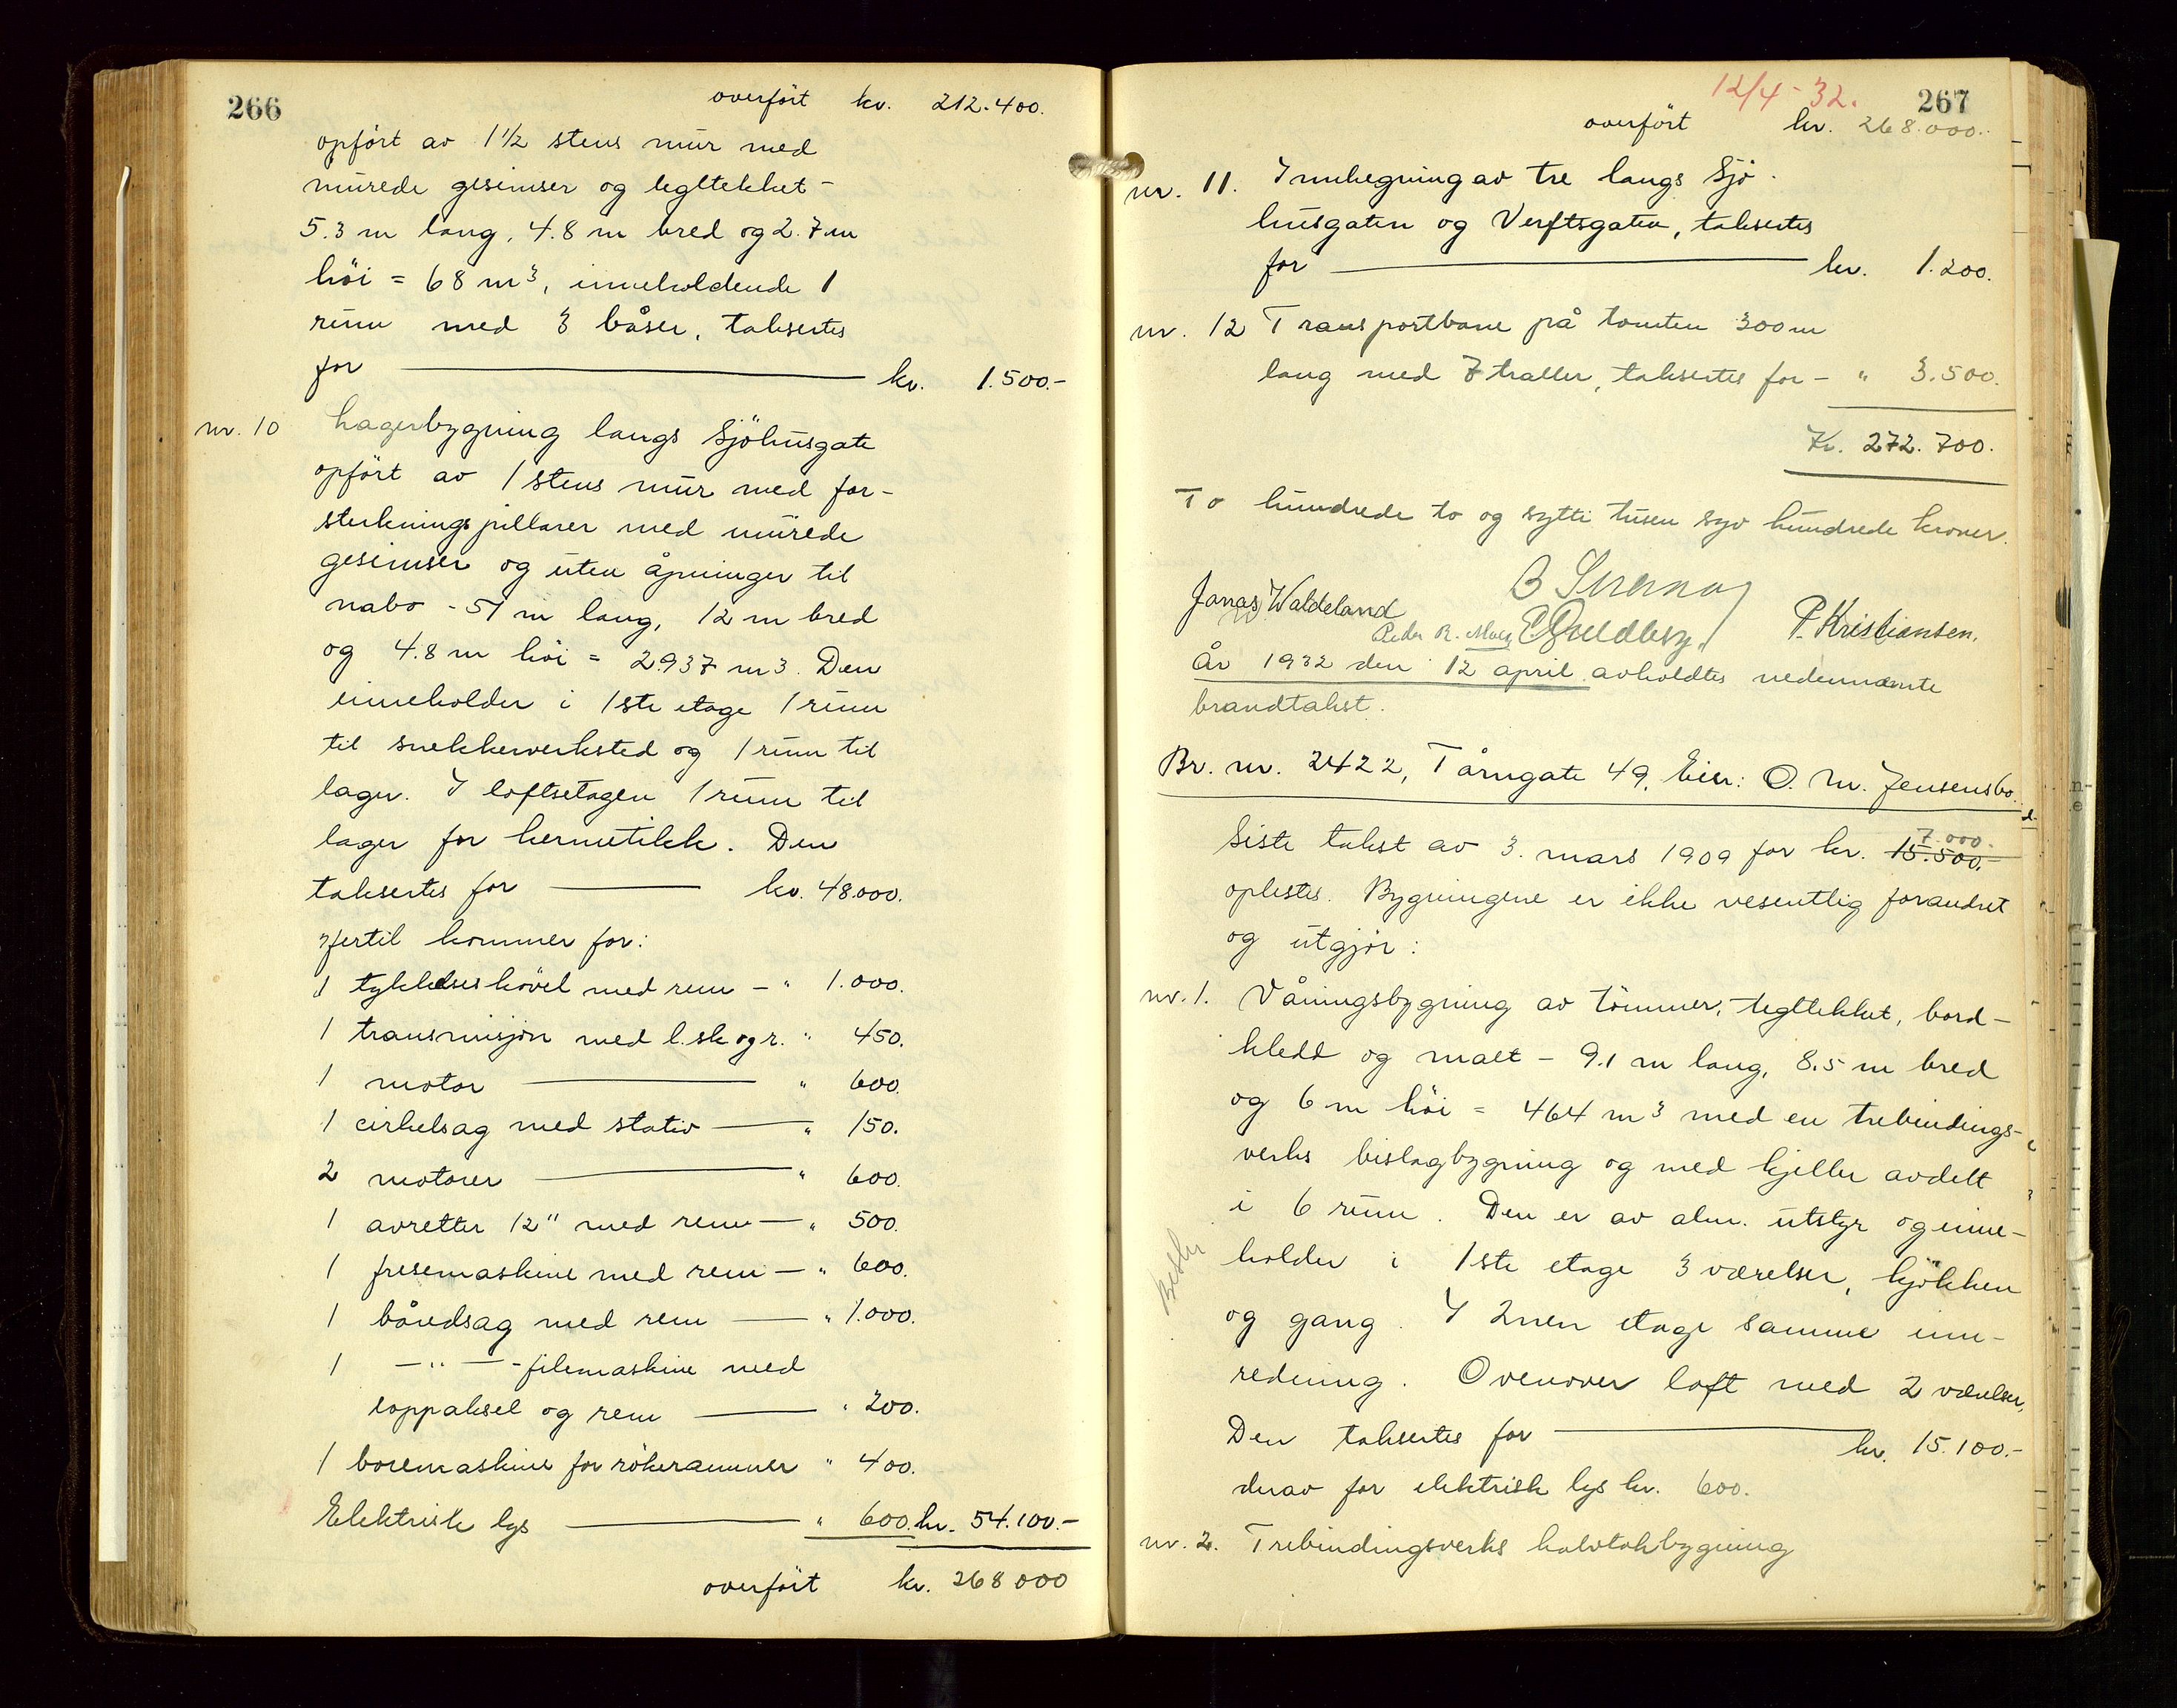 266
overført kr. 212.400.
opført av 1 1/2 stens mur med
murede gesimser og tegltekket -
5.3 m lang, 4.8 m bred og 2.7 m
höi = 68 m³, inneholdende 1
rum med 3 båser, taksertes
for kr. 1.500.-
nr. 10 Lagerbygning langs Sjöhusgate
opført av 1 stens mur med for-
sterkningspillarer med murede
gesimser og uten åpninger til
nabo - 51 m lang, 12 m bred
og 4.8 m höi = 2937 m³. Den
inneholder i 1ste etage 1 rum
til snekkerverksted og 1 rum til
lager. I loftsetagen 1 rum til
lager for hermetikk. Den
taksertes for kr. 48.000.
Hertil kommer for:
1 tykkelseshövel med rem - " 1.000.
1 transmisjon med l. sk og r. " 450.
1 motor " 600.
1 cirkelsag med stativ " 150.
2 motorer " 600.
1 avretter 12" med rem - " 500.
1 fresemaskine med rem - " 600.
1 båndsag med rem " 1.000.
1 - " - - filemaskine med
toppaksel og rem " 200.
1 boremaskine for rökerammer " 400.
Elektrisk lys " 600. kr. 54.100.-
overfört kr. 268 000
12/4 - 32.
267
overfört kr. 268.000.
nr. 11. Innhegning av tre langs Sjö-
husgaten og Verftsgaten, taksertes
for kr. 1.200.
nr. 12 Transportbane på tomten 300 m
lang med 7 traller, taksertes for - " 3.500.
Kr. 272.700.
To hundrede to og sytti tusen syv hundrede kroner.
Jonas Waldeland P. Kristiansen.
År 1932 den 12 april avholdtes nedennævnte
brandtakst.
Br. nr. 2422, Tårngate 49, Eier: O. M. Jensens bo.
7.000.-
Siste takst av 3. mars 1909 for kr. 15.500.-
oplestes. Bygningene er ikke vesentlig forandret
og utgjör:
nr. 1. Våningsbygning av tömmer, tegltekket, bord-
kledd og malt - 9.1 m lang, 8.5 m bred
og 6 m höi = 464 m³ med en trebindings-
verks bislagbygning og med kjeller avdelt
i 6 rum. Den er av alm. utstyr og inne-
holder i 1ste etage 3 værelser, kjökken
og gang. I 2nen etage samme inn-
redning. Ovenover loft med 2 værelser,
Den taksertes for kr. 15.100.-
derav for elektrisk lys kr. 600.
nr. 2. Trebindingsverks halvtakbygning